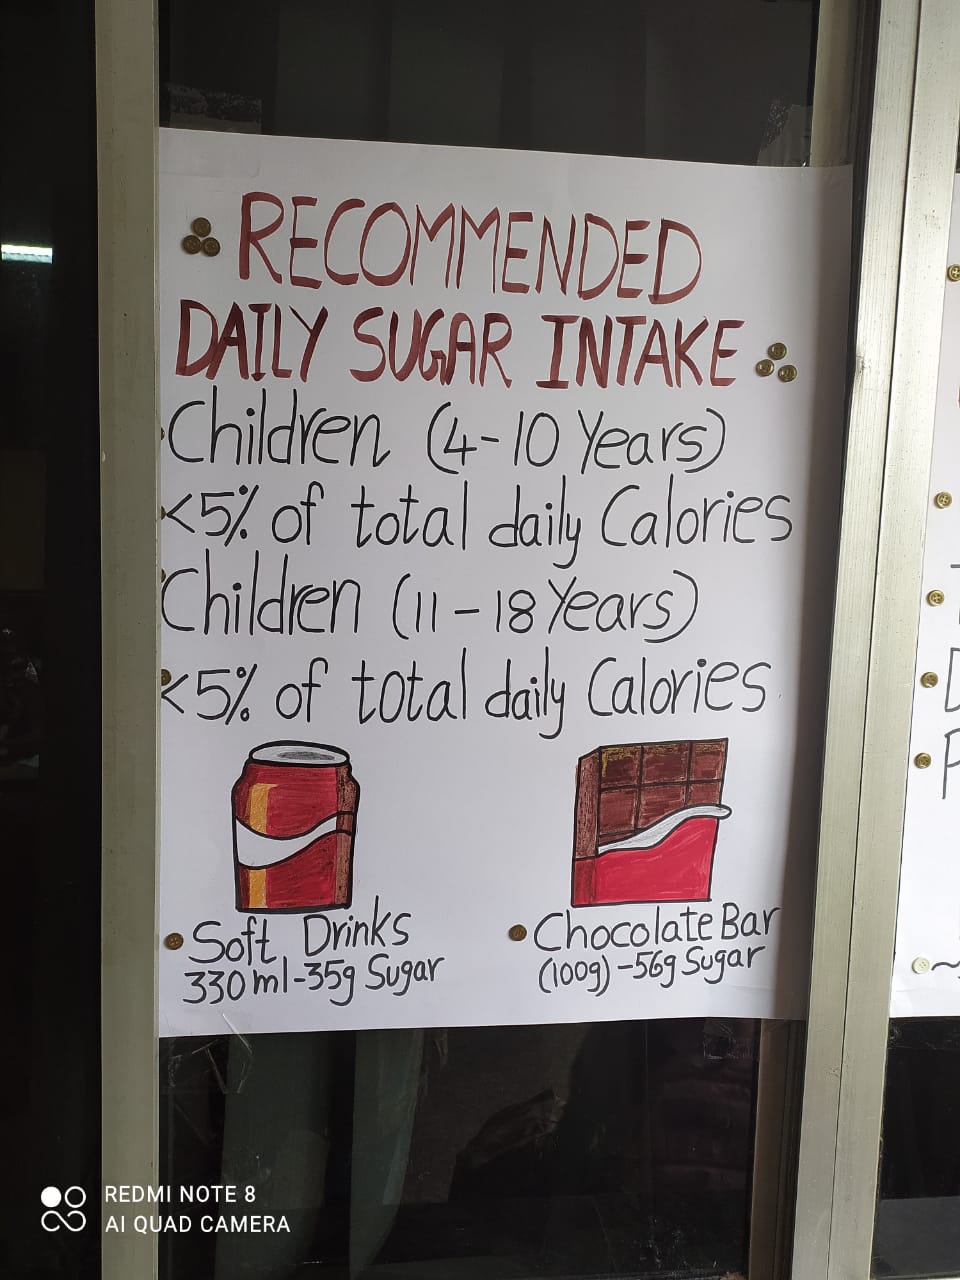 RECOMMENDED
DAILY SUGAR INTAKE
Children (4-10 Years)
<5% of total daily Calories
Children (11-18 Years)
<5% of total daily Calories
Soft Drinks
330ml-35g Sugar
Chocolate Bar
(100g)-56g Sugar
REDMI NOTE 8
AI QUAD CAMERA